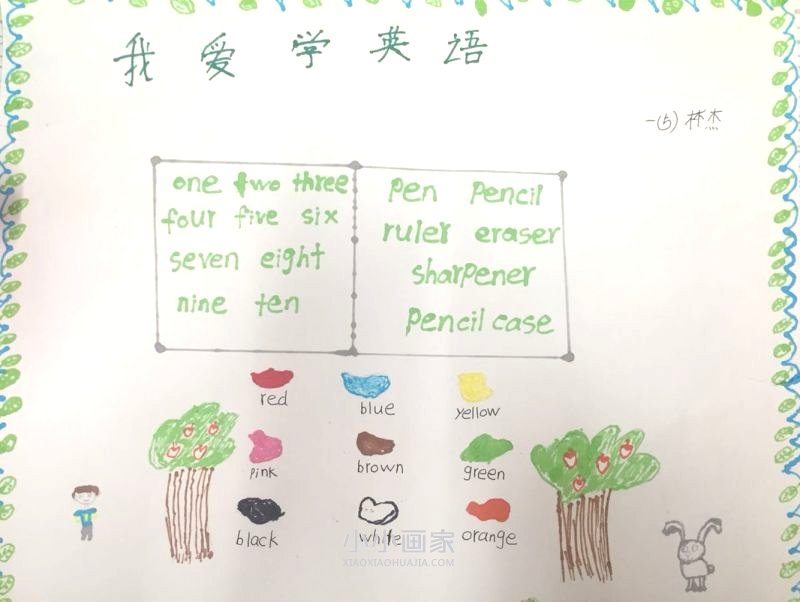 我爱学英语
一(5) 林杰
one two three
four five six
seven eight
nine ten
pen pencil
ruler eraser
sharpener
pencil case
red blue yellow
pink brown green
black white orange
小小画家
XIAOXIAOHUAJIA.COM